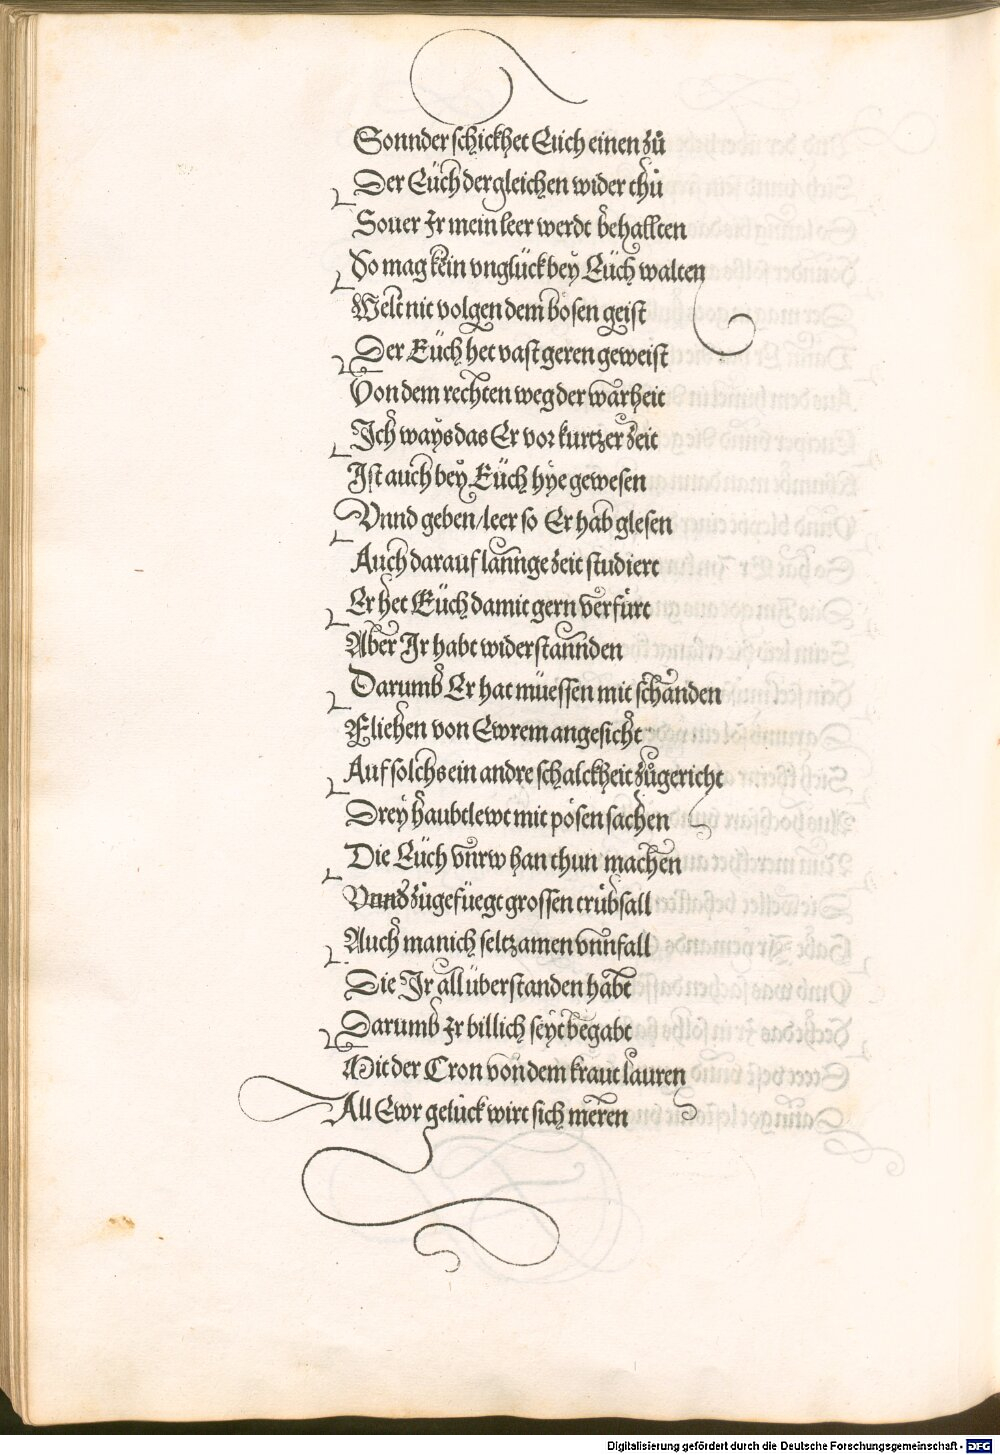 Sonnder schickhet Euch einen zů
Der Euch dergleichen wider thů
Souer Ir mein leer werdt behallten
So mag kein vnglück bey Euch walten
Welt nit volgen dem bösen geist
Der Euch het vast geren geweist
Von dem rechten weg der warheit
Ich ways das Er vor kurtzer Zeit
Ist auch bey Euch hye gewesen
Vnnd geben / leer so Er hab glesen
Auch darauf lannge Zeit studiert
Er het Euch damit gern verfürt
Aber Ir habt widerstannden
Darumb Er hat müessen mit schanden
Fliehen von Ewrem angesicht
Auf solchs ein andre schalckheit zůgericht
Drey haubtlewt mit pösen sachen
Die Euch vnrw han thun machen
Vnnd zůgefüegt grossen trübsall
Auch manich seltzamen vnnfall
Die Ir all überstanden habt
Darumb Ir billich seyt begabt
Mit der Cron von dem kraut lauren
All Ewr gelück wirt sich meren
Digitalisierung gefördert durch die Deutsche Forschungsgemeinschaft - DFG